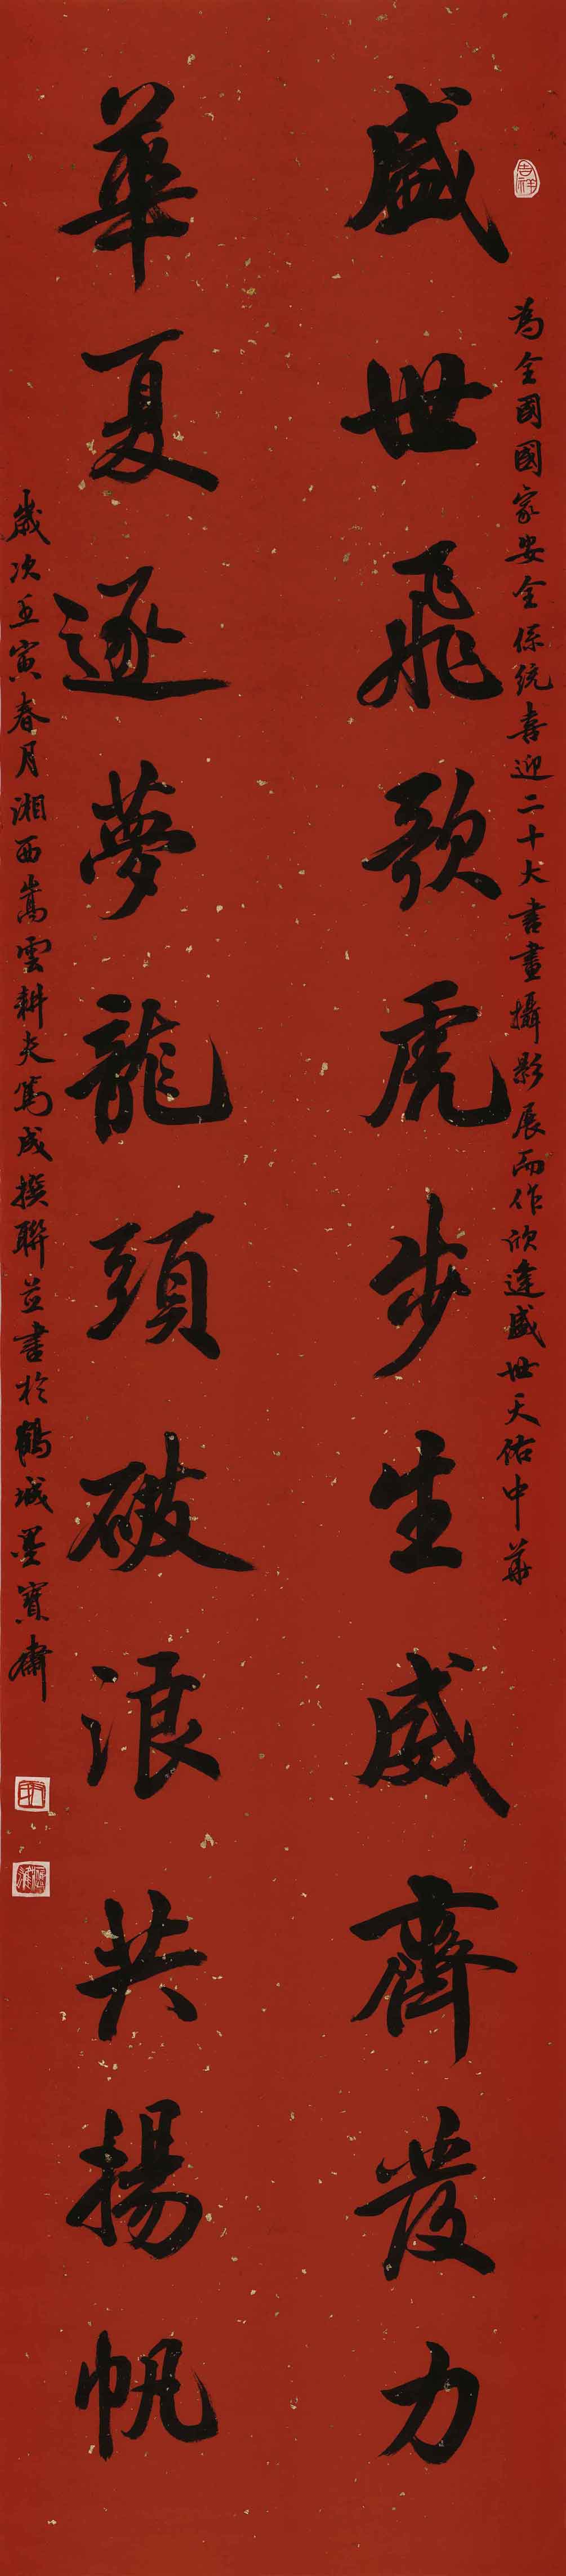 吉祥
為全國國家安全係統喜迎二十大書畫攝影展而作欣逢盛世天佑中華
盛世飛歌虎步生威齊發力
華夏逐夢龍頭破浪共揚帆
歲次壬寅春月湘西嵩雲耕夫篤成撰聯並書於鶴城墨寶齋